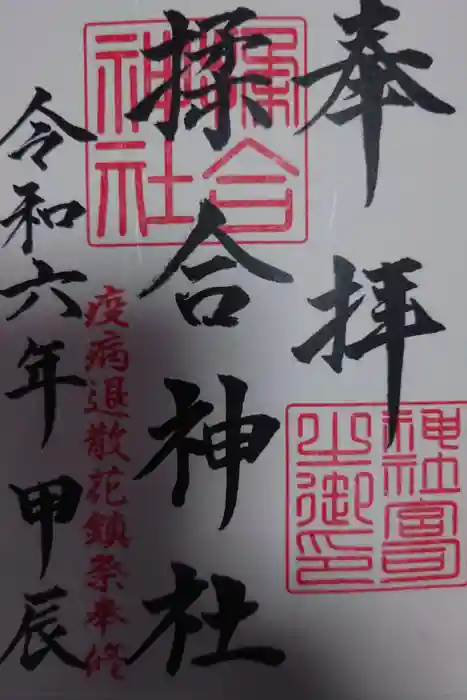 奉拝
揉合神社
疫病退散花鎮祭奉修
令和六年甲辰
揉合神社
神社宮司之御印